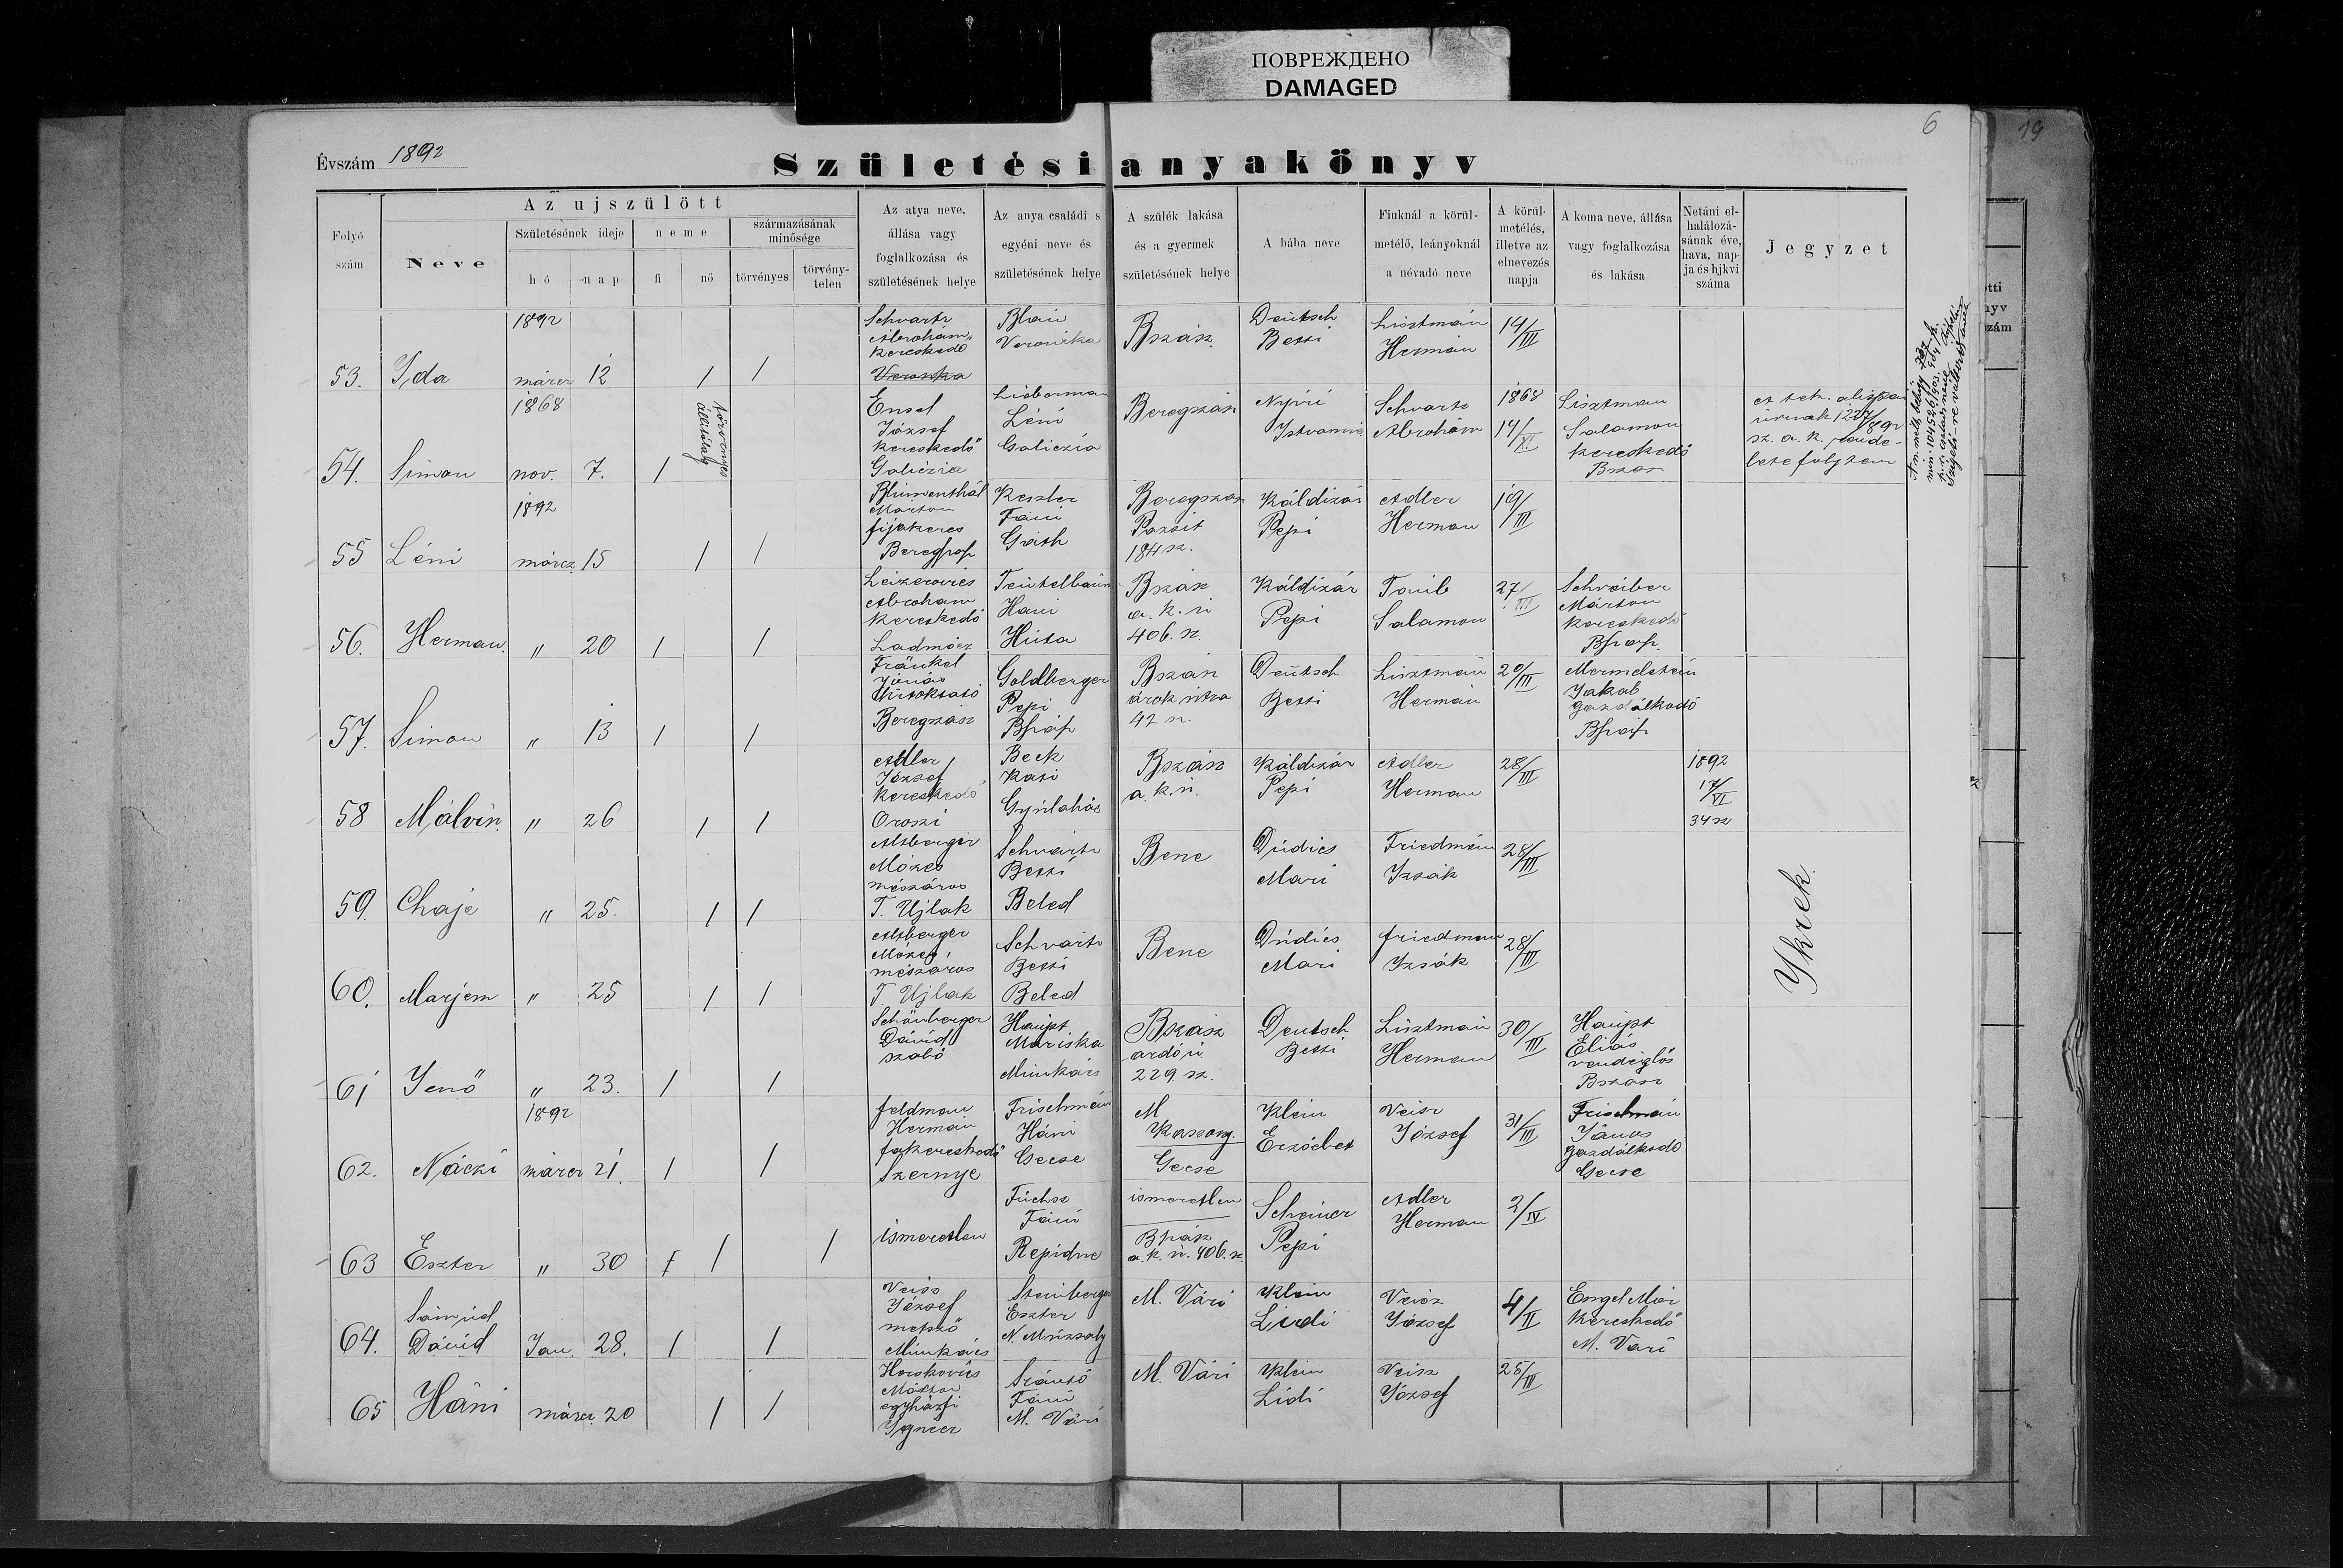 ПОВРЕЖДЕНО
DAMAGED
6
19
Évszám 1892
Születési anyakönyv
Folyó szám
Az ujszülött
Neve
Születésének ideje
hó
nap
neme
fi
nő
származásának minősége
törvényes
törvénytelen
Az atya neve, állása vagy foglalkozása és születésének helye
Az anya családi s egyéni neve és születésének helye
A szülék lakása és a gyermek születésének helye
A bába neve
Fiuknál a körülmetélő, leányoknál a névadó neve
A körülmetélés, illetve az elnevezés napja
A koma neve, állása vagy foglalkozása és lakása
Netáni elhalálozásának éve, hava, napja és hjkvi száma
Jegyzet
53. Ida 1892 márcz 12 / / Schvartz Abrohám kereskedő Veronka Blau Veronika Bszász. Deutsch Betti Lisztmán Hermán 14/III
54. Simon 1868 nov. 7. / törvényes állitólag Ensel József kereskedő Galiczia Lieberman Léni Galiczia Beregszász Nyiri Istvanné Schvartz Abrohám 1868 14/XI Lisztman Salamon kereskedő Bszász
55 Léni 1892 márcz 15 / / Blumenthál Márton fijakeres Beregszász Keszler Fáni Gáth Beregszász Pázsit 184 sz. Káldizár Pepi Adler Herman 19/III
56. Herman. " 20 / / Leizerovics Abroham kereskedő Ladmócz Teütelbaüm Hani Huta Bszász a. k. ú 406. sz. Káldizár Pepi Taub Salamon 27/III Schreiber Márton kereskedő Bszász
57. Simon " 13 / / Fränkel Jónás Beregszász Goldberger Pepi Bszász Bszász árok utca 42 sz. Deütsch Betti Lisztmán Hermán 20/III Mermelstein Jakab gazdálkodó Bszász
58 Málvin. " 26 / / Adler József kereskedő Oroszi Beck Kati Gyulaház Bszász a. k. ú. Káldizár Pepi Adler Herman 28/III 1892 17/VI 34 sz
59. Chaje " 25. / / Altberger Mózes mészáros T. Ujlak Schvartz Betti Beled Bene Dudics Mari Friedmán Izsák 28/III
60. Marjem " 25 / / Altberger Mózes mészáros T. Ujlak Schvartz Betti Beled Bene Dudics Mari Friedman Izsák 28/III
Ikrek.
61 Jenő " 23. / / Schönberger Dávid szabó Haupt Mariska Munkács Bszász ardó ú 229 sz. Deutsch Betti Lisztmán Herman 30/III Haupt Eliás vendéglős Bszász
62. Náczi 1892 márcz 21. / / Feldman Hermán fakereskedő Szernye Frischmán Háni Gecse M Kaszony. Gecse Klein Erzsébet Veisz József 31/III Frischmán János gazdálkodó Gecse
63 Eszter " 30 / / ismeretlen Fuchsz Fáni Repidne ismeretlen Bszász a. k. ú. 406. sz. Scheiner Pepi Adler Herman 2/IV
64. Sámuel Dávid Jan. 28. / / Veiss József metsző Munkács Steinberger Eszter N. Muzsaly M. Vári Klein Lidi Veisz József 4/II Engel Mór kereskedő M. Vári
65 Háni márcz. 20 / / Herskovics Márton egyházfi Szántó Fáni M. Vári M. Vári Klein Lidi Veisz József 25/III